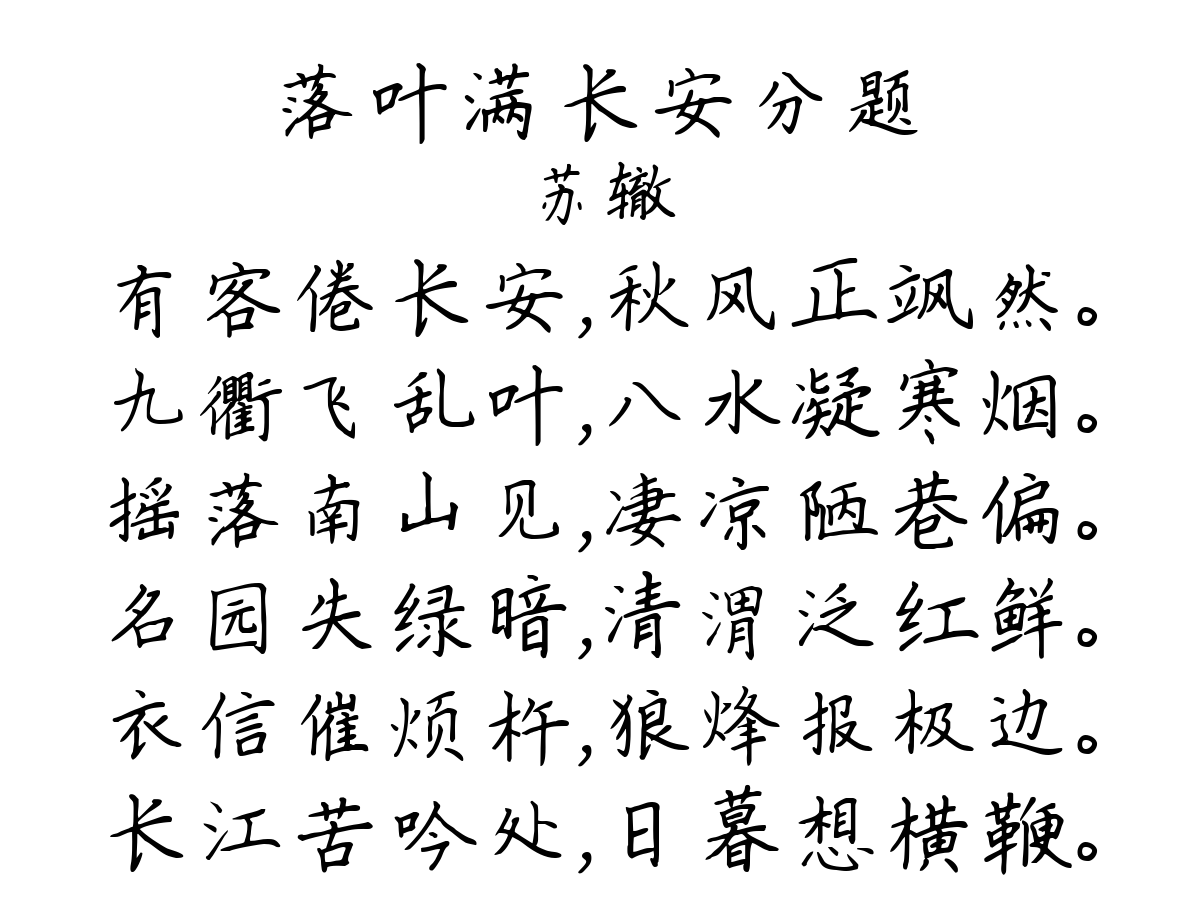 落叶满长安分题
苏辙
有客倦长安,秋风正飒然。
九衢飞乱叶,八水凝寒烟。
摇落南山见,凄凉陋巷偏。
名园失绿暗,清渭泛红鲜。
衣信催烦杵,狼烽报极边。
长江苦吟处,日暮想横鞭。